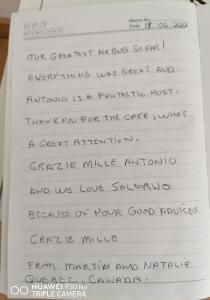 Memo No.
Date 18 / 06 / 2022
OUR GREATEST AIRBNB SO FAR!
EVERYTHING WAS GREAT AND
ANTONIO IS A FANTASTIC HOST.
THANK YOU FOR THE CAKE, WHAT
A GREAT ATTENTION.
GRAZIE MILLE ANTONIO
AND WE LOVE SALERNO
BECAUSE OF YOUR GOOD ADVICES
GRAZIE MILLE
FROM MARTIN AND NATALIE
QUEBEC, CANADA.
HUAWEI P30 lite
TRIPLE CAMERA